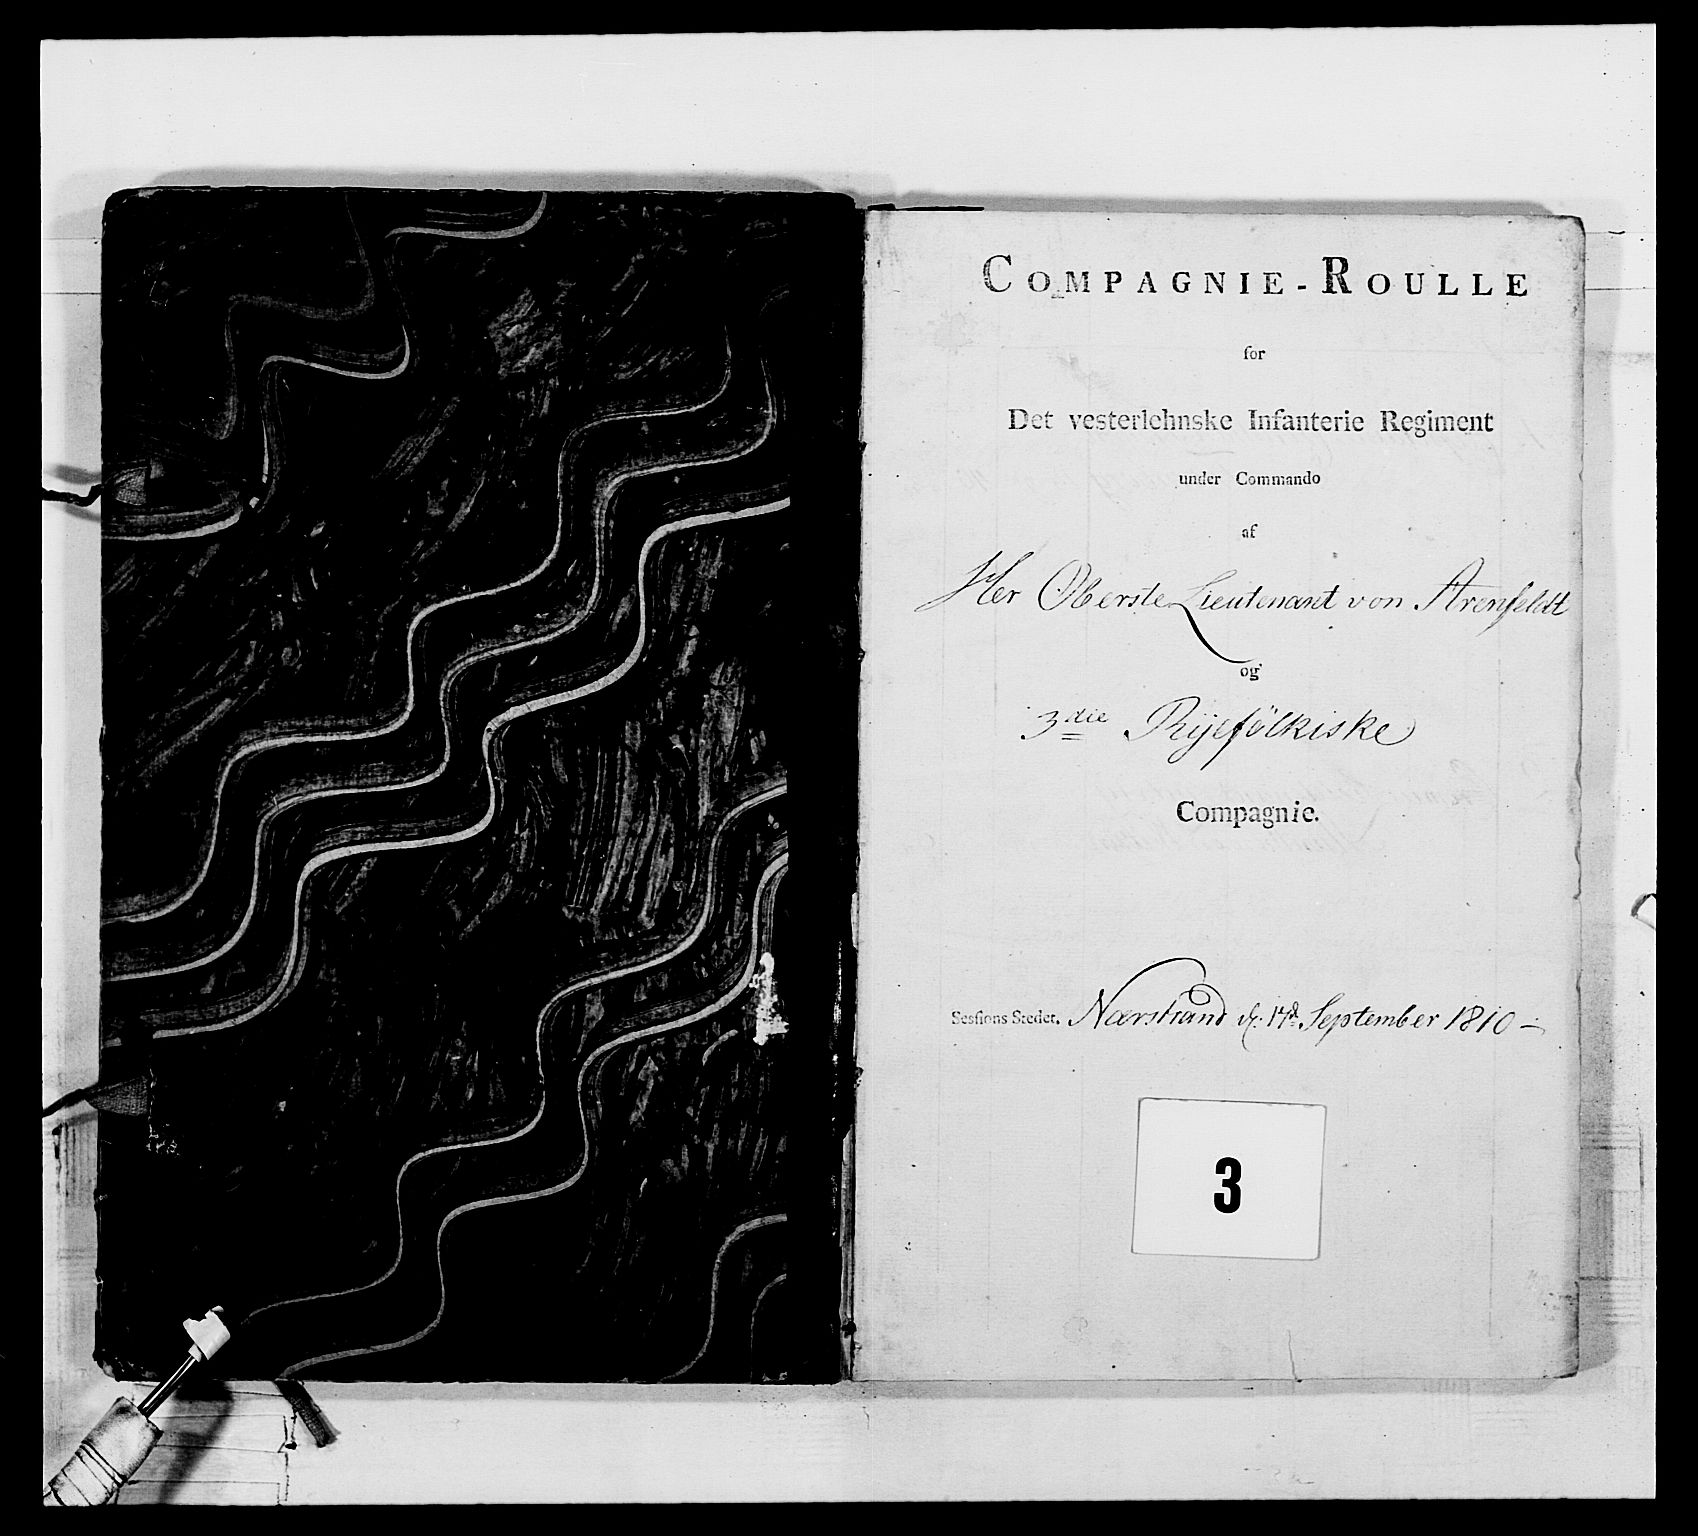 COMPAGNIE-ROULLE
for
Det vesterlehnske Infanterie Regiment
under Commando
af
Her Oberste Lieutenant von Arenfeldt
og
3die Ryefölkiske
Compagnie.
Sessions Stedet. Nærstrand d. 17d September 1810 -
3